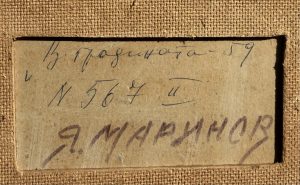 В градината - 59
N 567 II
Я. МАРИНОВ